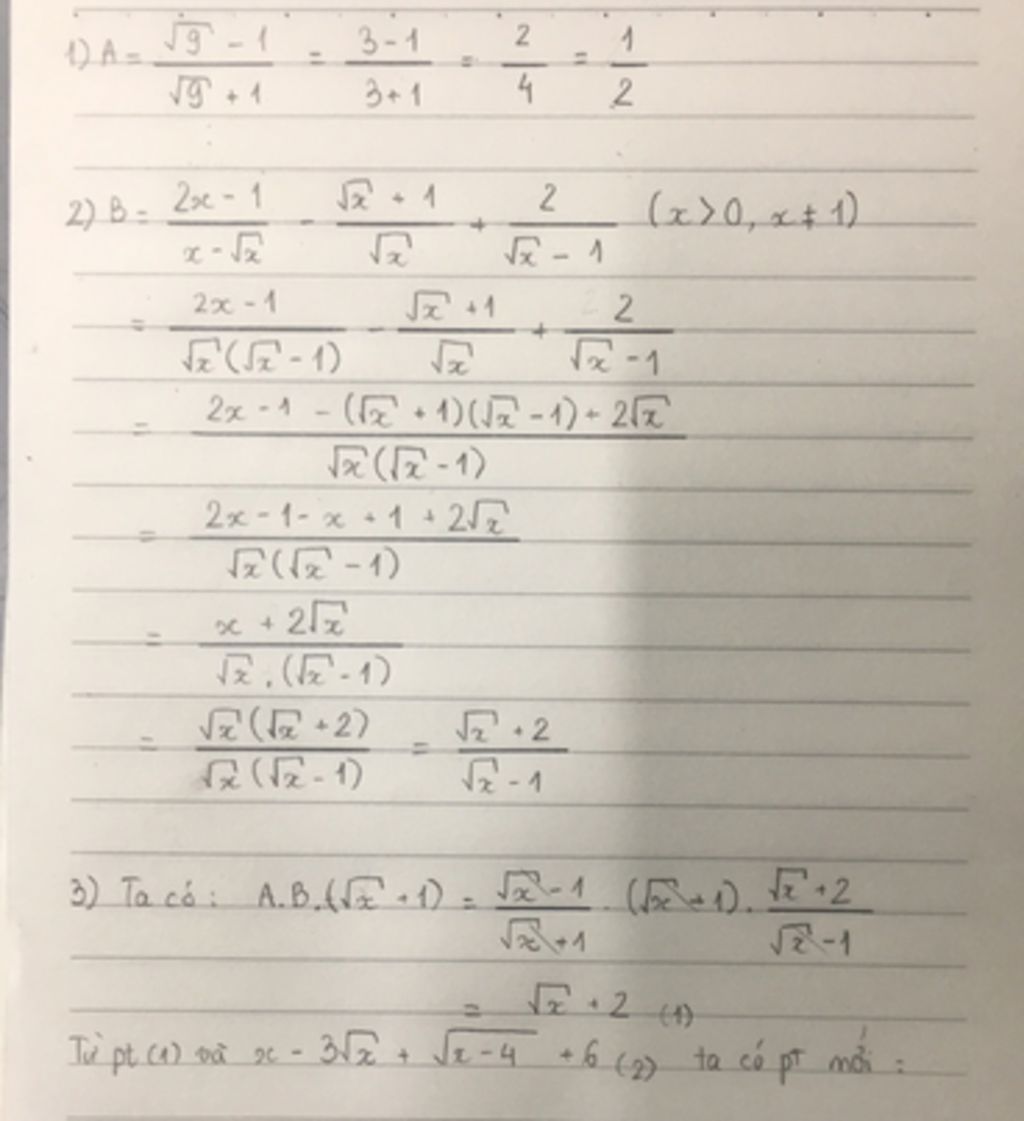 1) A = (√9 - 1)/(√9 + 1) = (3 - 1)/(3 + 1) = 2/4 = 1/2
2) B = (2x - 1)/(x - √x) - (√x + 1)/√x + 2/(√x - 1) (x > 0, x ≠ 1)
= (2x - 1)/(√x(√x - 1)) - (√x + 1)/√x + 2/(√x - 1)
= (2x - 1 - (√x + 1)(√x - 1) + 2√x)/(√x(√x - 1))
= (2x - 1 - x + 1 + 2√x)/(√x(√x - 1))
= (x + 2√x)/(√x . (√x - 1))
= (√x(√x + 2))/(√x(√x - 1)) = (√x + 2)/(√x - 1)
3) Ta có : A.B.(√x + 1) = (√x - 1)/(√x + 1) . (√x + 1) . (√x + 2)/(√x - 1)
= √x + 2 (1)
Từ pt (1) và x - 3√x + √(x - 4) + 6 (2) ta có pT mới :